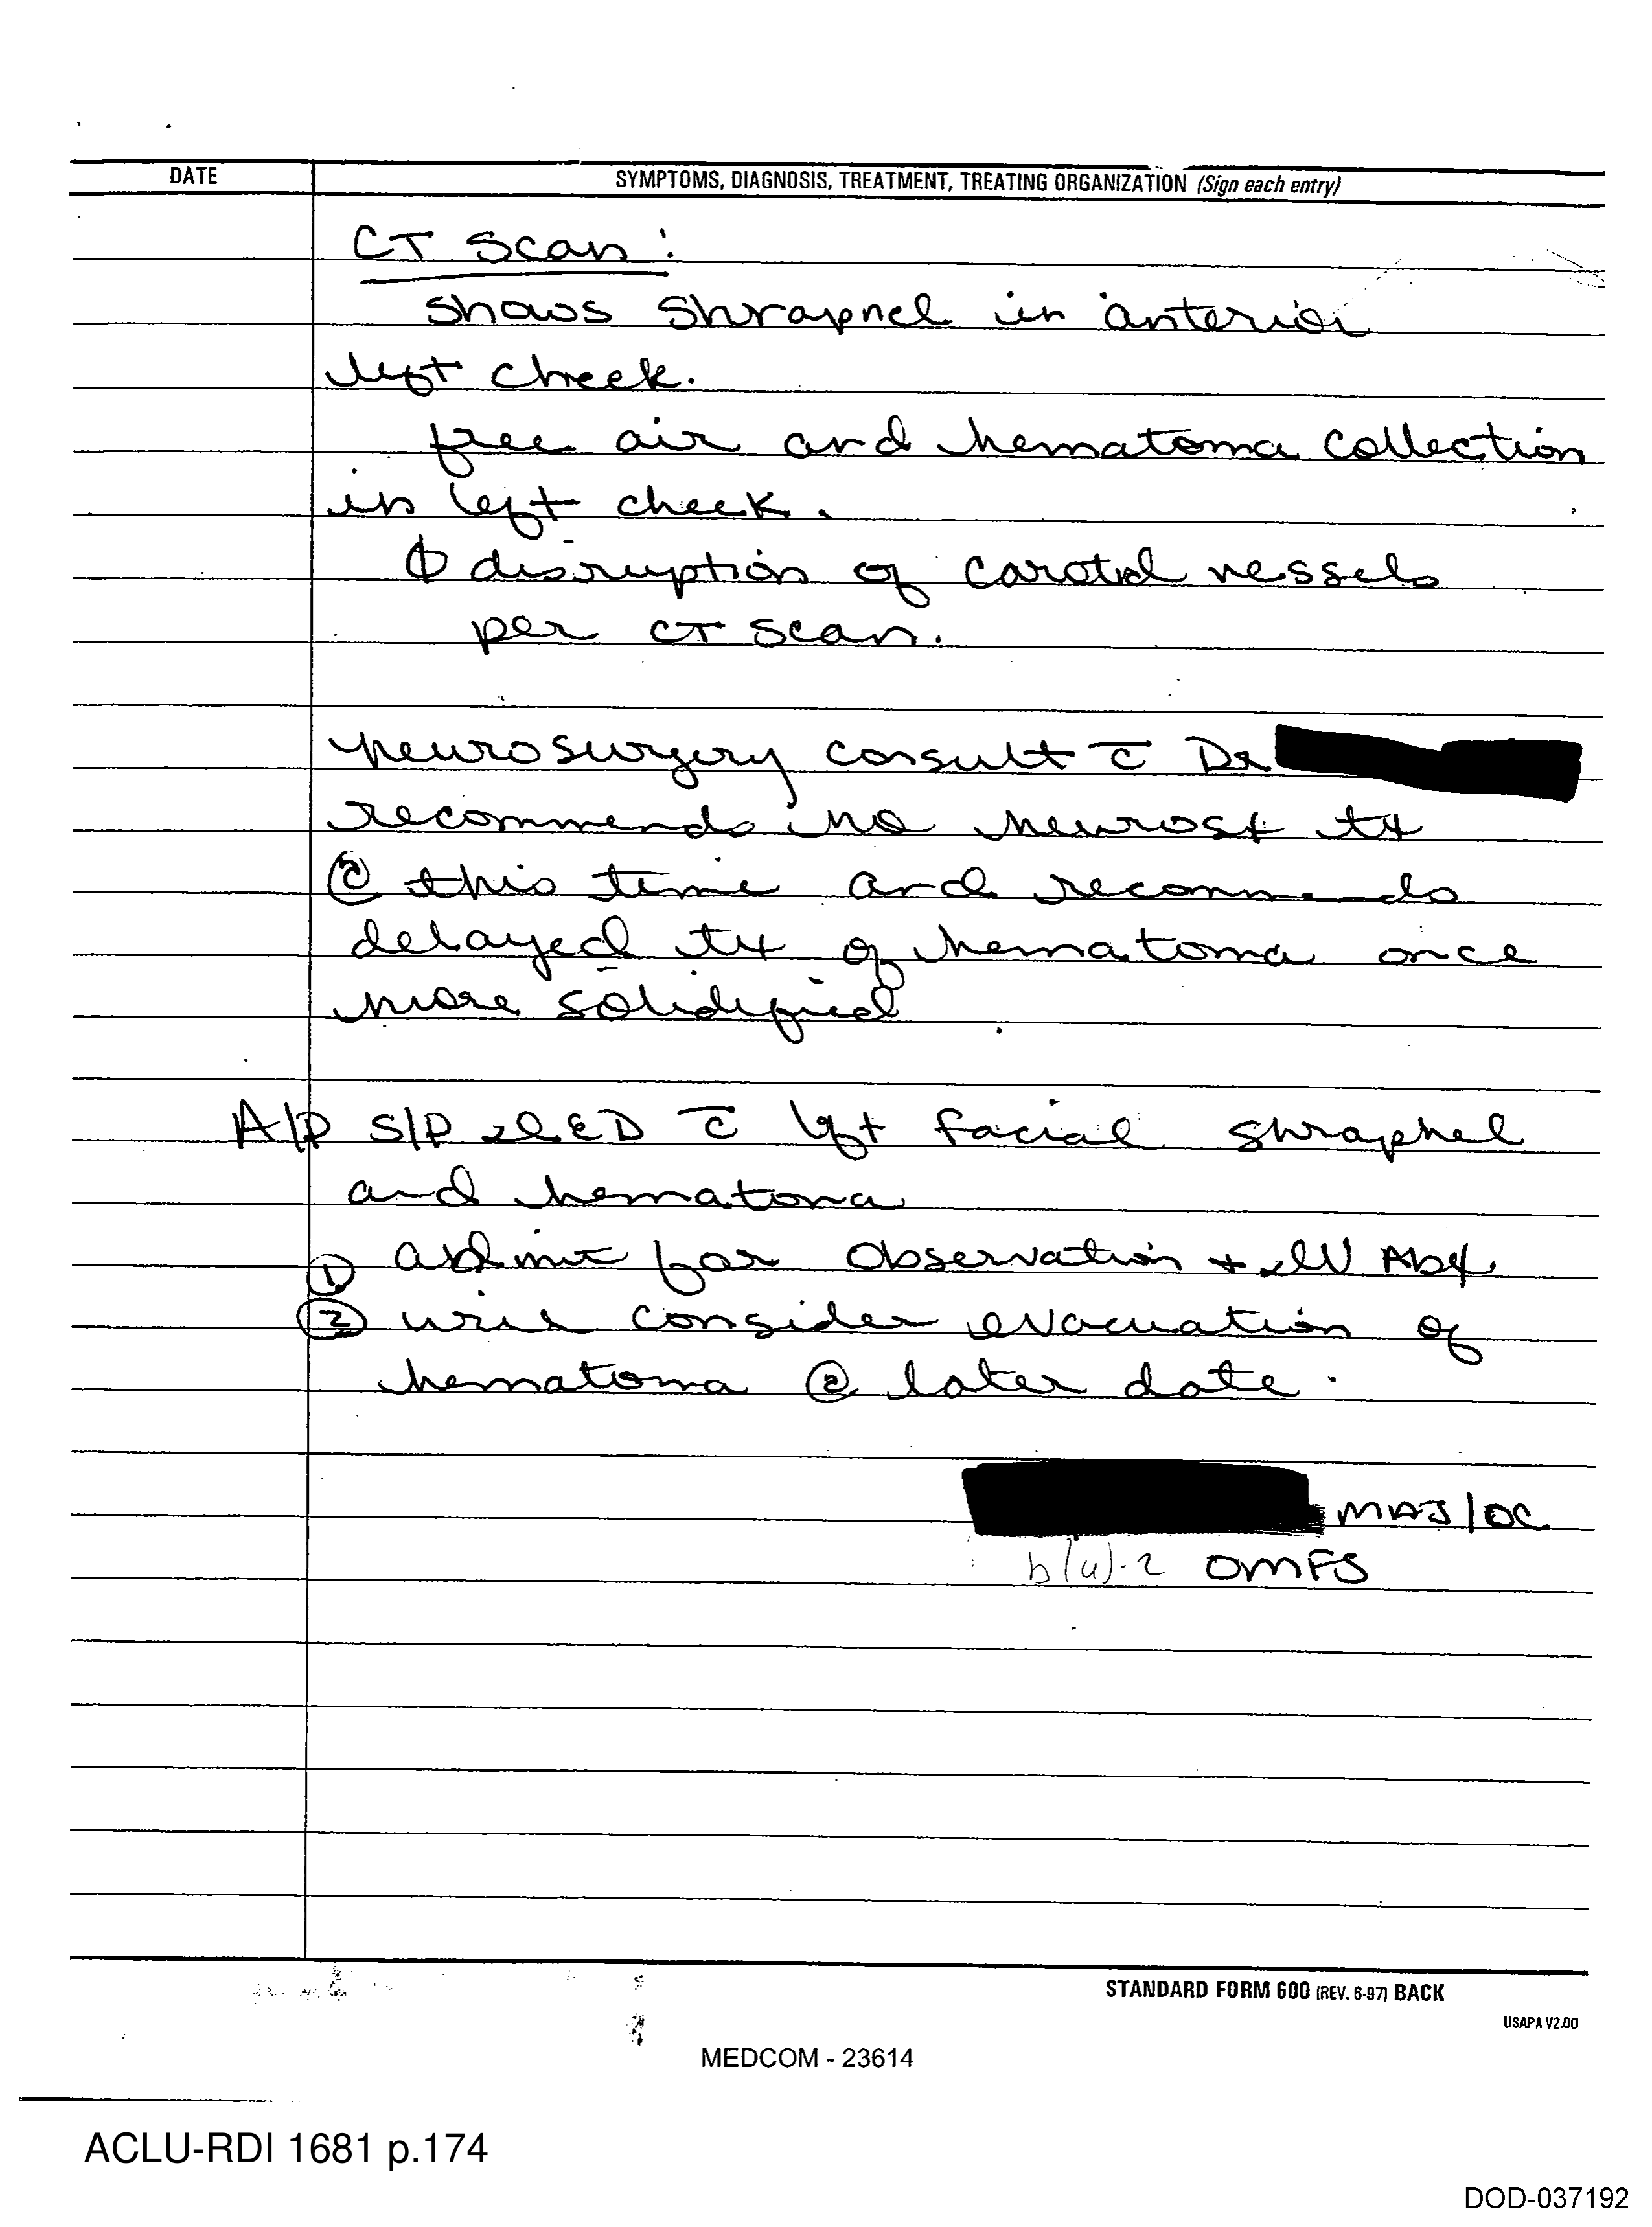 DATE
SYMPTOMS, DIAGNOSIS, TREATMENT, TREATING ORGANIZATION (Sign each entry)
CT Scan:
shows shrapnel in anterior
left cheek.
free air and hematoma collection
in left cheek.
Φ disruption of carotid vessels
per CT scan.
neurosurgery consult c̄ Dr
recommends no tx
@ this time and recommends
delayed tx of hematoma once
more solidified
A/P S/P IED c̄ left facial shrapnel
and hematoma
① admit for observation + IV Abx.
② will consider evacuation of
hematoma @ later date.
MAJ/DC
b(6)-2 OMFS
STANDARD FORM 600 (REV. 6-97) BACK
USAPA V2.00
MEDCOM - 23614
ACLU-RDI 1681 p.174
DOD-037192